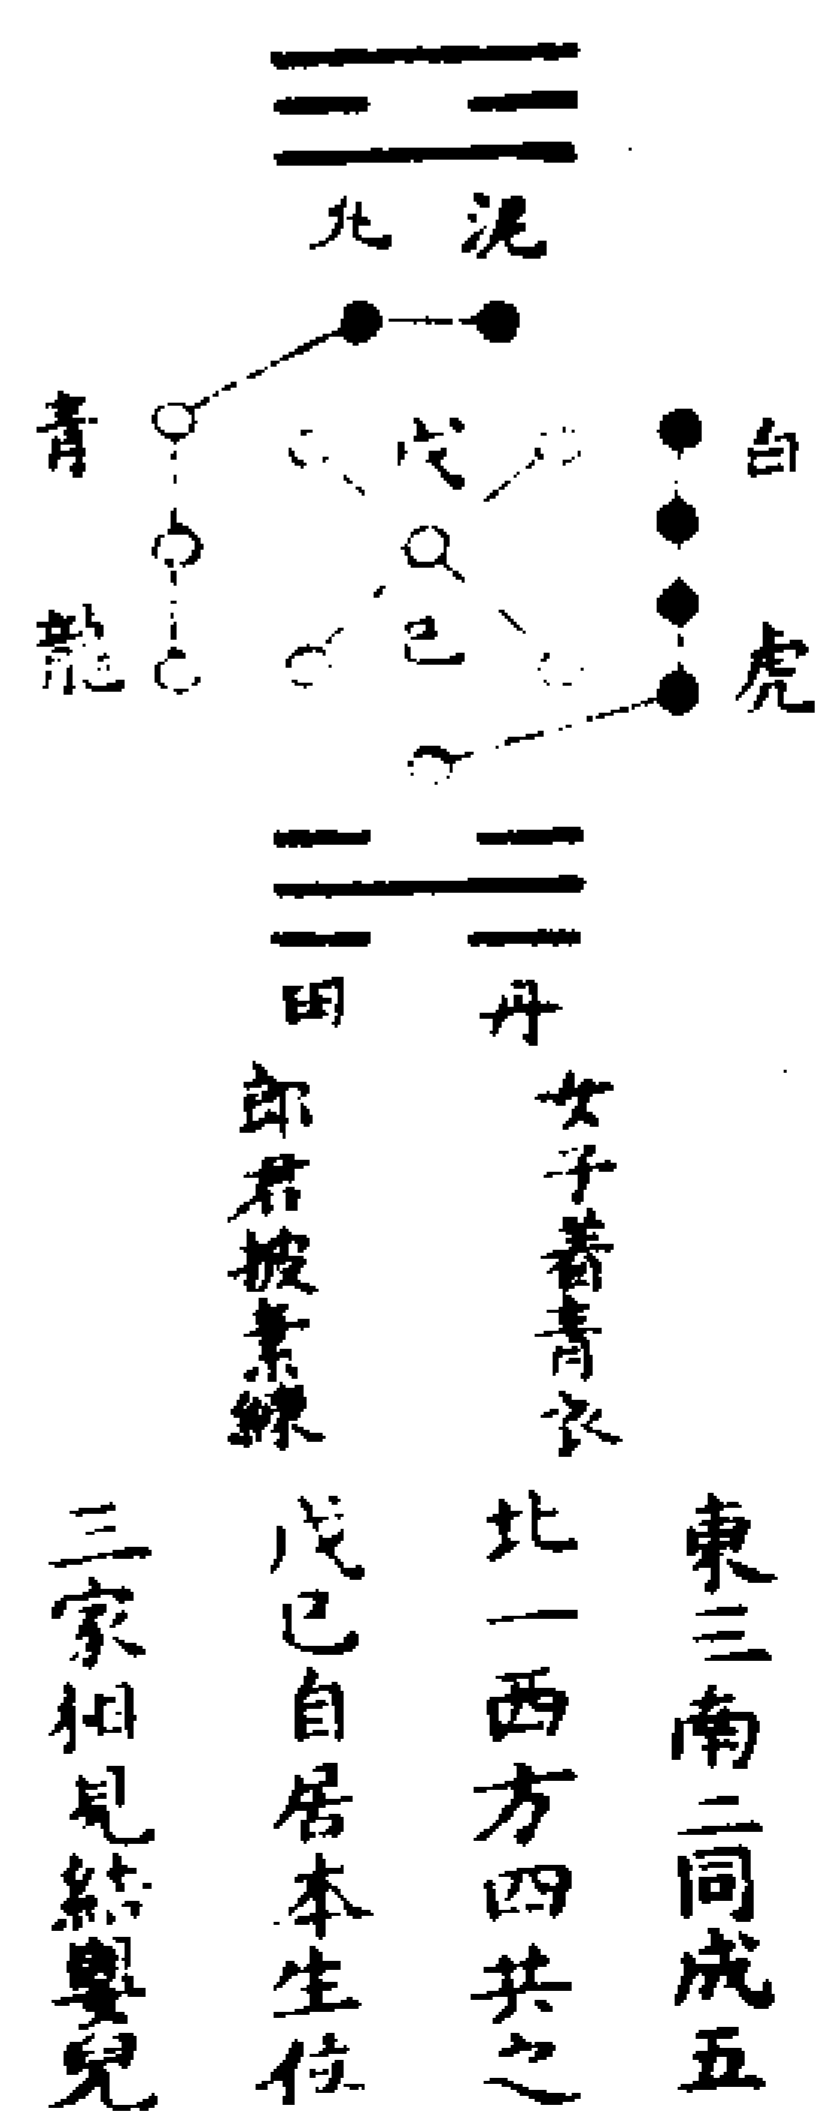 泥
白虎
戊
己
青龍
丹田
女子著青衣
郎君披素練
東三南二同成五
北一西方四共之
戊己自居本生位
三家相見結嬰兒